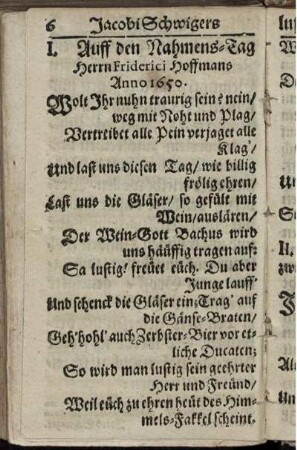 6 Jacobi Schwigers
I. Auff den Nahmens-Tag
Herrn Friderici Hoffmans
Anno 1650.
Wolt Ihr nuhn traurig sein? nein/
weg mit Noht und Plag/
Vertreibet alle Pein verjaget alle
Klag'/
Und last uns diesen Tag/ wie billig
frölig ehren/
Last uns die Gläser/ so gefült mit
Wein/ auslären/
Der Wein-Gott Bachus wird
uns häüffig tragen auf:
Sa lustig! freüet eüch. Du aber
Junge lauff'
Und schenck die Gläser ein; Trag' auf
die Gänse-Braten/
Geh' hohl' auch Zerbster-Bier vor et-
liche Ducaten;
So wird man lustig sein geehrter
Herr und Freünd/
Weil eüch zu ehren heüt des Him-
mels-Fakkel scheint.